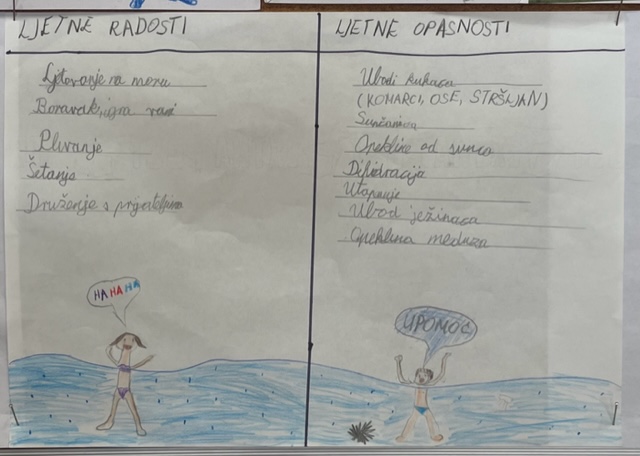 LJETNE RADOSTI
Ljetovanje na moru
Boravak, igra vani
Plivanje
Šetanje
Druženje s prijateljima
HA HA HA
LJETNE OPASNOSTI
Ubodi kukaca
(KOMARCI, OSE, STRŠLJAN)
Sunčanica
Opekline od sunca
Dihidracija
Utapanje
Ubod ježinaca
Opeklina meduza
UPOMOĆ